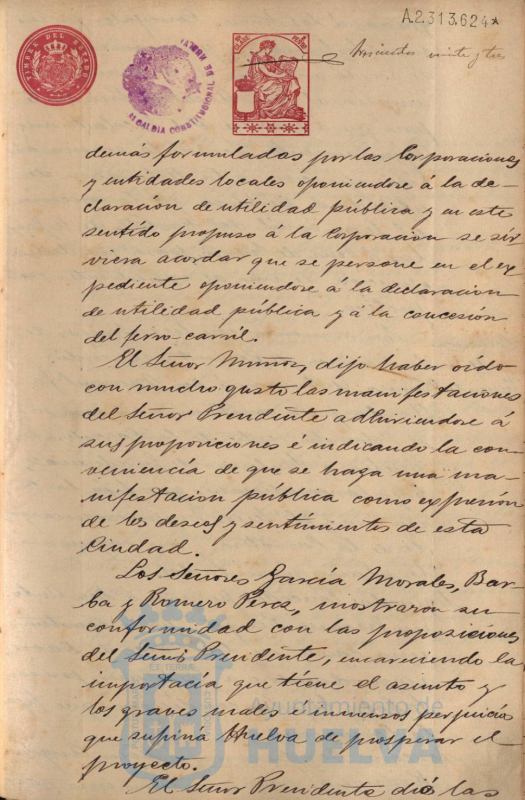 A.2.313.624*
TIMBRE DEL ESTADO
ALCALDIA CONSTITUCIONAL DE HUELVA
doscientos veinte y tres
demás formuladas por las Corporaciones
y entidades locales oponiendose á la de-
claración de utilidad pública y en este
sentido propuso á la Corporacion se sir
viera acordar que se persone en el ex
pediente oponiendose á la declaracion
de utilidad pública y á la concesión
del ferro-carril.
El Señor Muñoz, dijo haber oido
con mucho gusto las manifestaciones
del Señor Presidente adhiriendose á
sus proposiciones é indicando la con-
veniencia de que se haga una ma-
nifestacion pública como expresión
de los deseos y sentimientos de esta
Ciudad.
Los Señores García Morales, Bar-
ba y Romero Perez, mostraron su
conformidad con las proposiciones
del Señor Presidente, encareciendo la
importacía que tiene el asunto y
los graves males é inmensos perjuicios
que sufriria Huelva de prosperar el
proyecto.
El Señor Presidente dió las
Ayuntamiento de
HUELVA